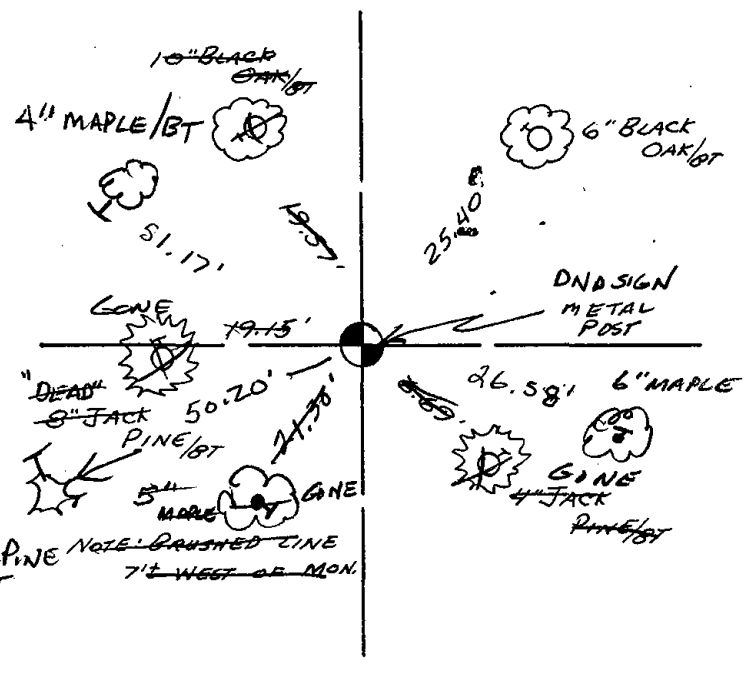 10" BLACK
OAK/BT
4" MAPLE/BT
6" BLACK
OAK/BT
51.17'
19.57'
25.40'
DND SIGN
METAL
POST
GONE
79.15'
"DEAD"
8" JACK
PINE/BT
50.20'
21.38'
8.69'
26.58'
6" MAPLE
5"
MAPLE
GONE
GONE
4" JACK
PINE/BT
PINE
NOTE: BRUSHED LINE
7'± WEST OF MON.